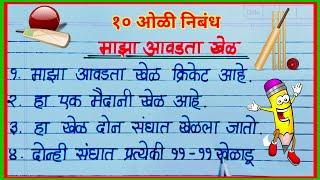 १० ओळी निबंध
माझा आवडता खेळ
१. माझा आवडता खेळ क्रिकेट आहे.
२. हा एक मैदानी खेळ आहे.
३. हा खेळ दोन संघात खेळला जातो.
४. दोन्ही संघात प्रत्येकी ११-११ खेळाडू